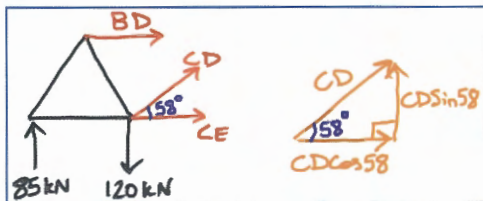 BD
CD
58°
CE
85kN
120kN
CD
CDSin58
58°
CDCos58